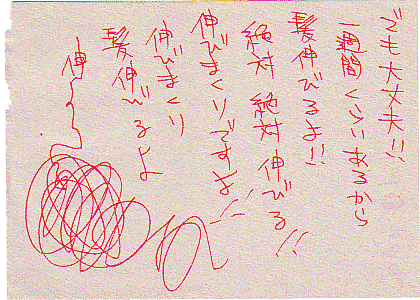 でも大丈夫!!
一週間くらいあるから
髪伸びるよ!!
絶対 絶対 伸びる!!
伸びまくりですよ!!
伸びまくり
髪伸びるよ
伸